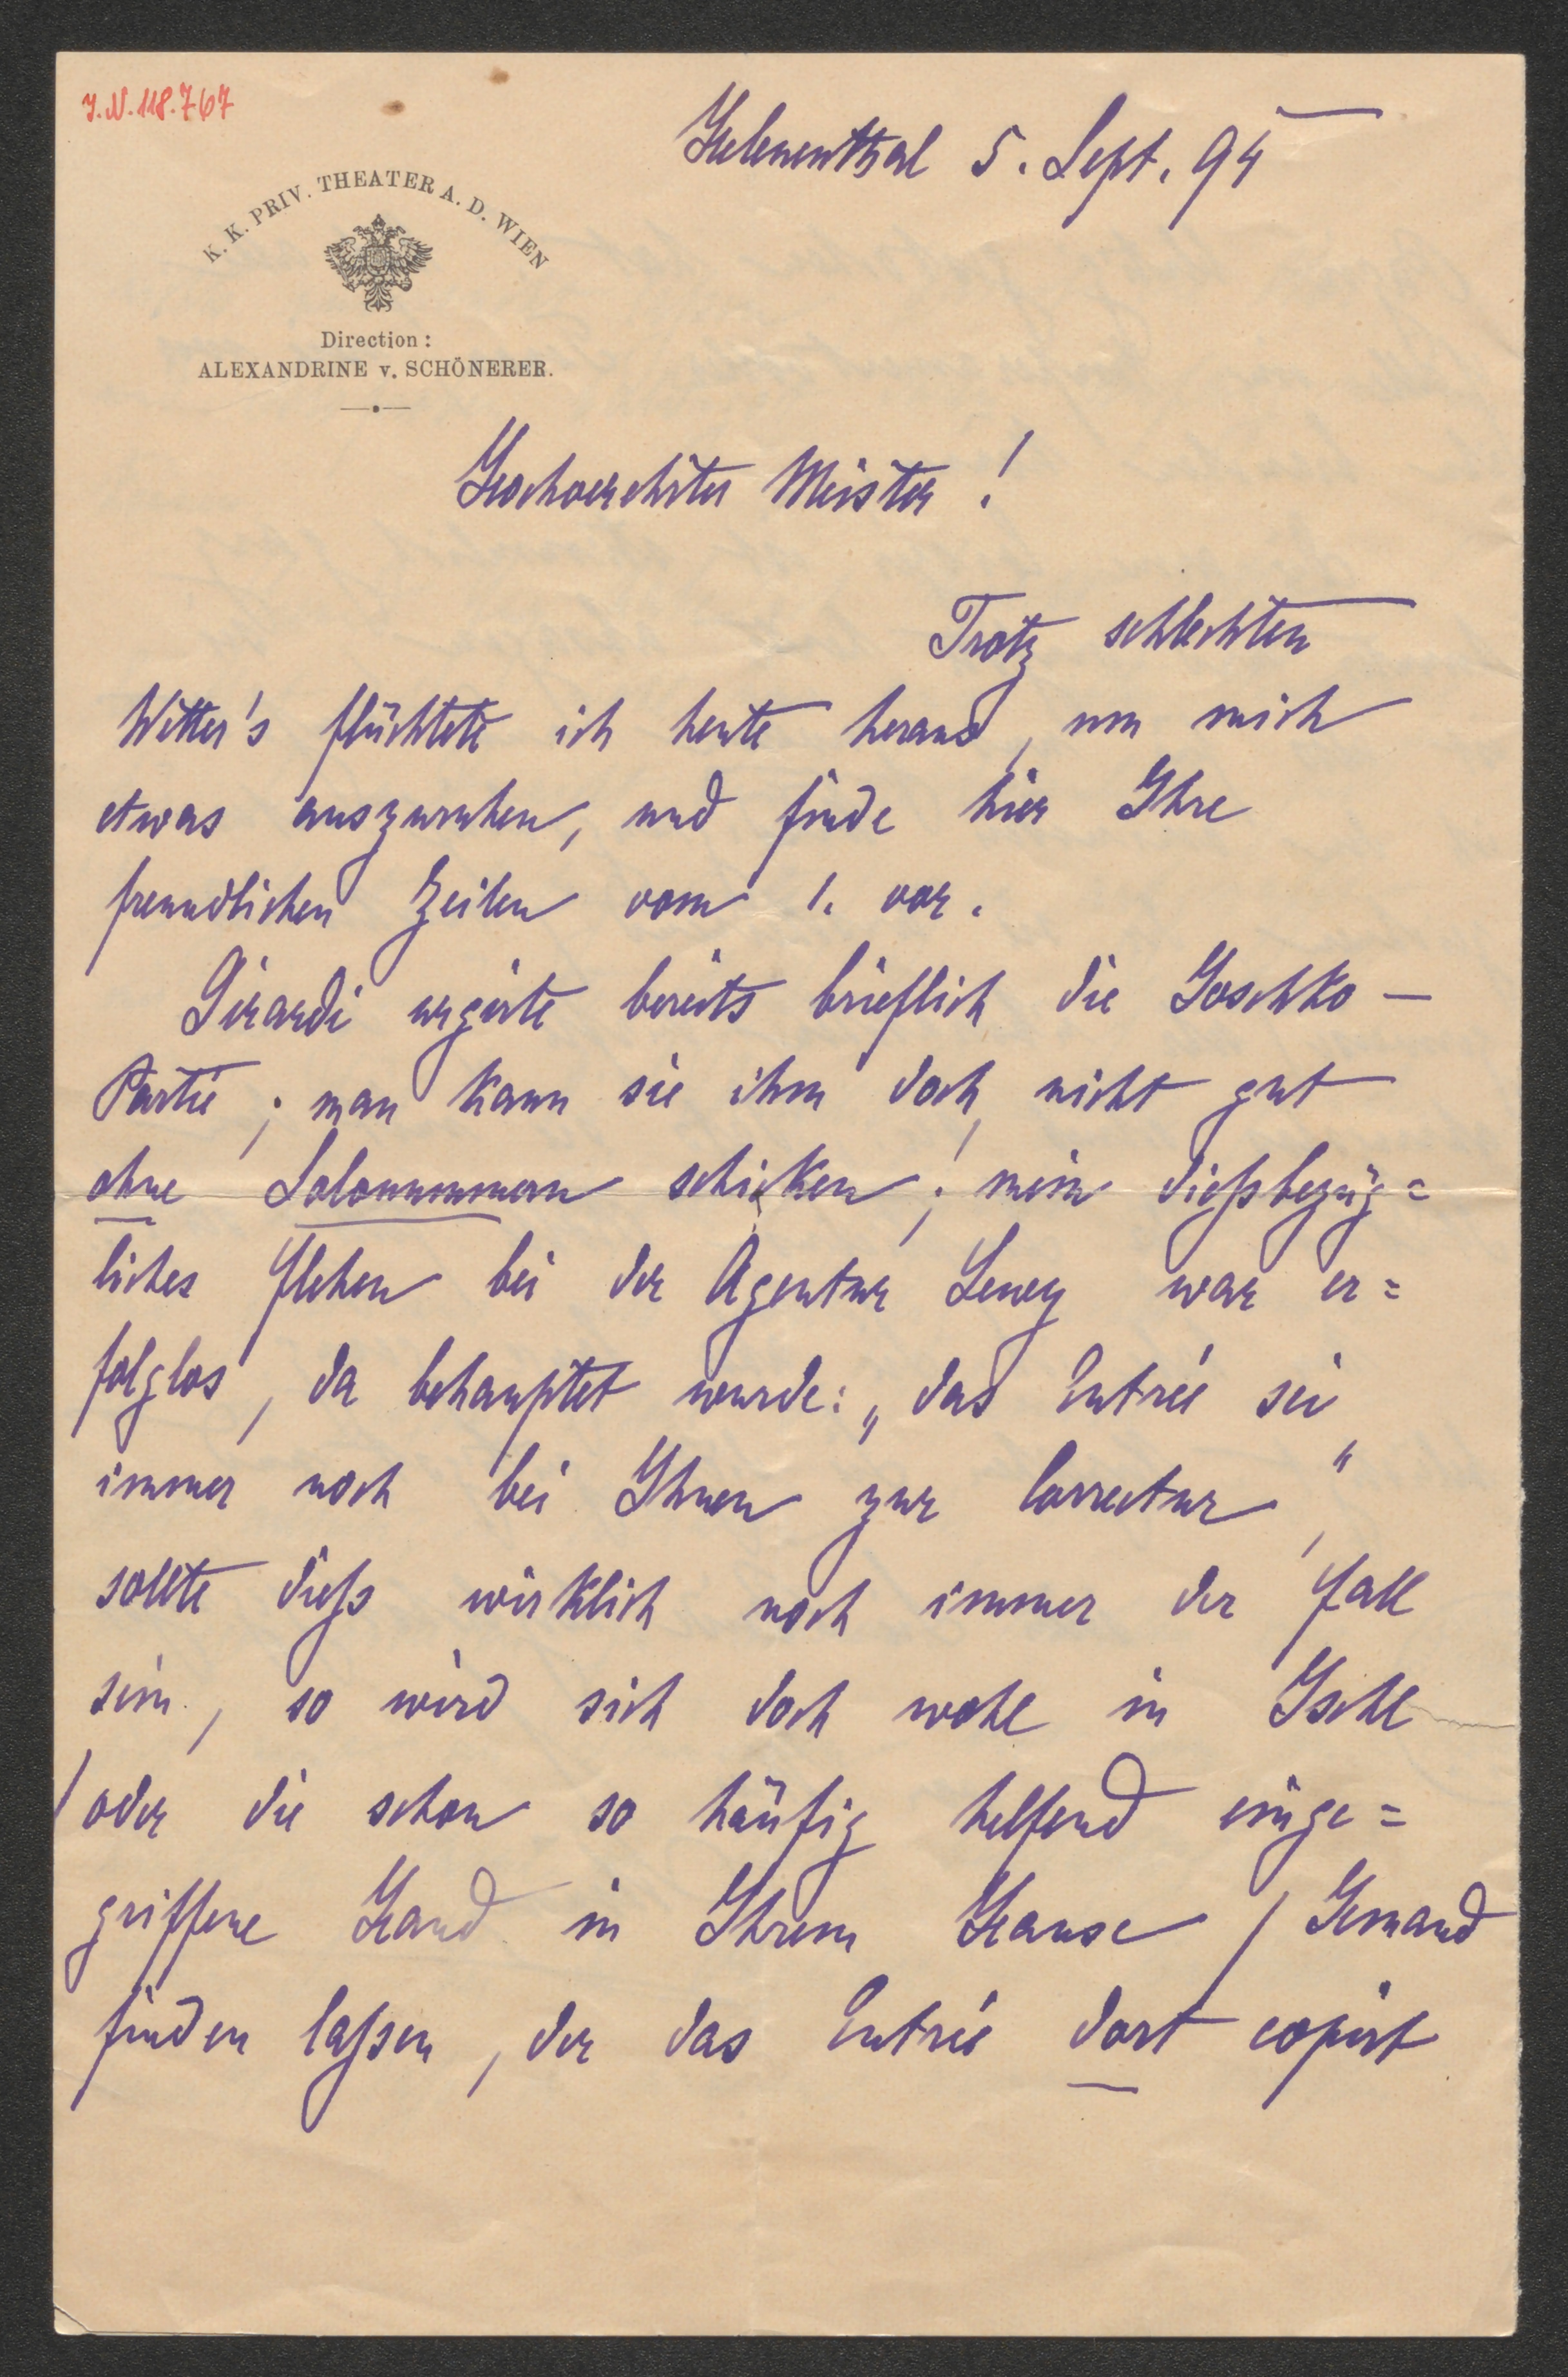 J.N. 118.767
Helenenthal 5. Sept. 94
K. K. PRIV. THEATER A. D. WIEN
Direction :
ALEXANDRINE v. SCHÖNERER.
Hochverehrter Meister !
Trotz schlechten
Wetter's flüchtete ich heute heraus, um mich
etwas auszuruhen, und finde hier Ihre
freundlichen Zeilen vom 1. vor.
Girardi urgirte bereits brieflich die Joschko –
Partie ; man kann sie ihm doch nicht gut
ohne Solonummern schicken ; mein dießbezüg=
liches Flehen bei der Agentur Lewy war er=
folglos, da behauptet wurde: „das Entrée sei
immer noch bei Ihnen zur Correctur“,
sollte dieß wirklich noch immer der Fall
sein, so wird sich doch wohl in Ischl
/ oder die schon so häufig helfend einge=
griffene Hand in Ihrem Hause / Jemand
finden laßen, der das Entrée dort copirt